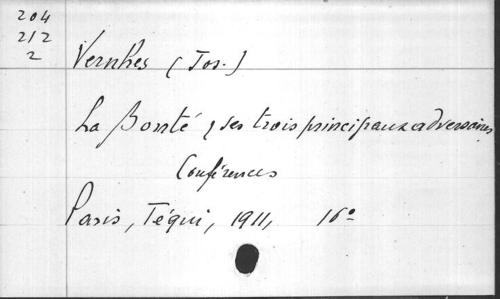 204
212
2
Vernhes (Jos.)
La Bonté & ses trois principaux adversaires
Conférences
Paris, Téqui, 1911, 16°